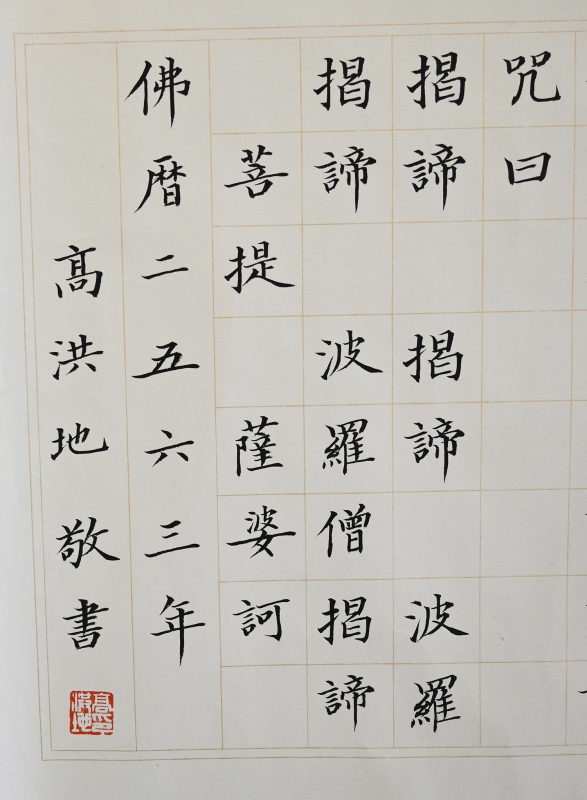 咒曰
揭諦揭諦波羅
揭諦波羅僧揭諦
菩提薩婆訶
佛曆二五六三年
髙洪地敬書